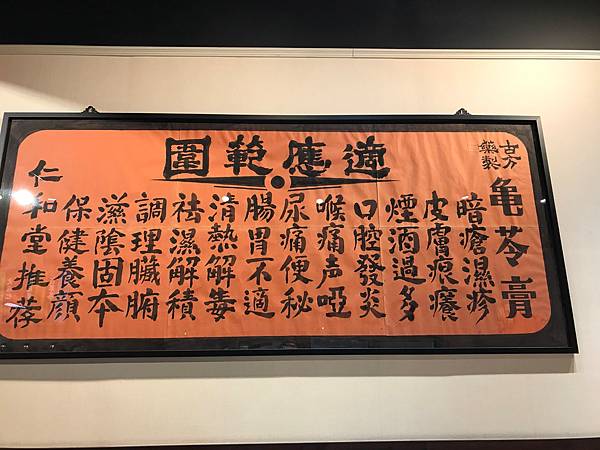 適應範圍
古方
藥製
龟苓膏
暗瘡濕疹
皮膚痕癢
煙酒過多
口腔發炎
喉痛声啞
尿痛便秘
腸胃不適
清熱解毒
祛濕解積
調理臟腑
滋陰固本
保健養顏
仁和堂推荐